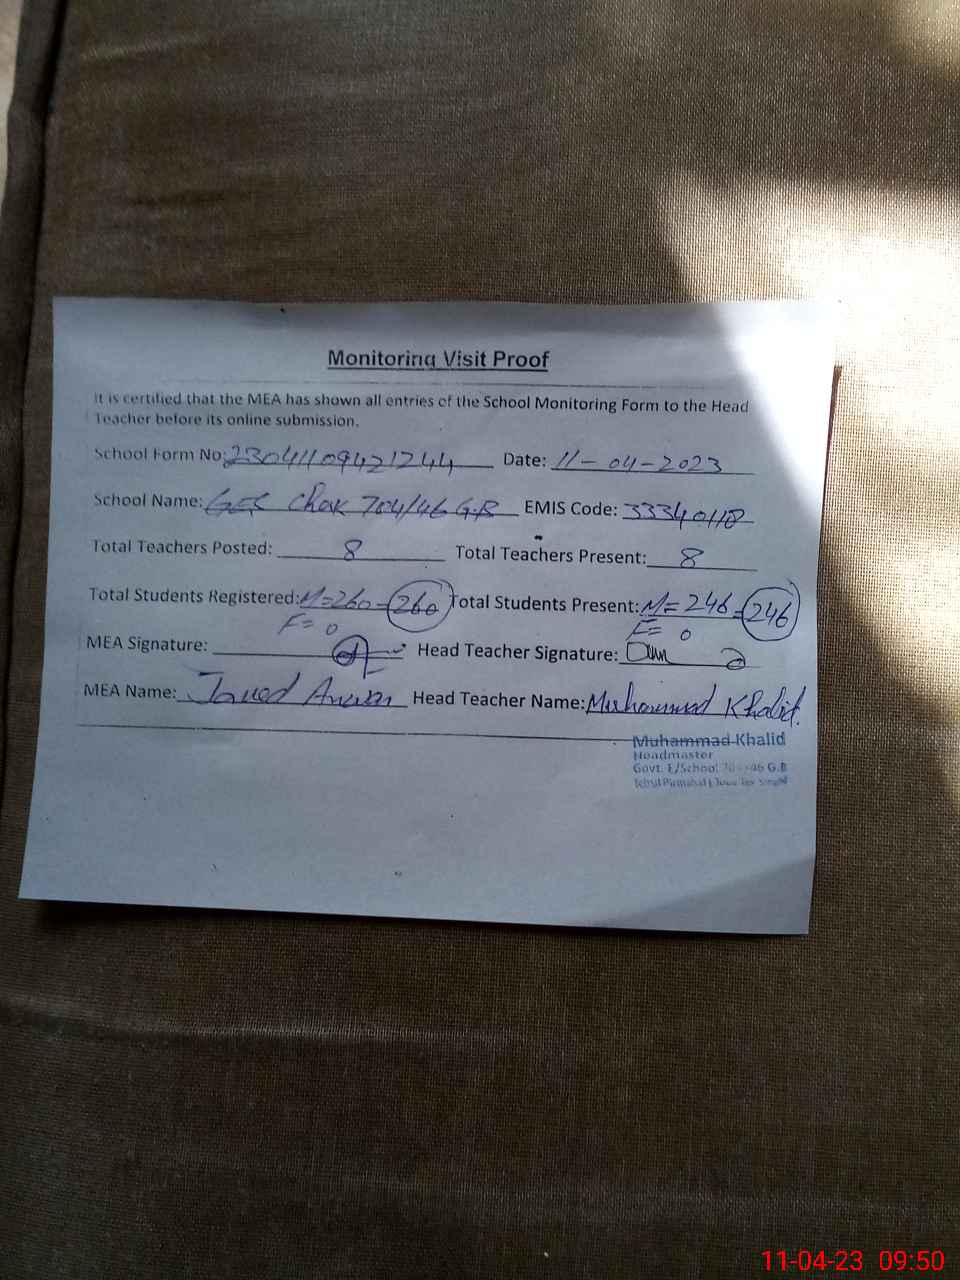 Monitoring Visit Proof
It is certified that the MEA has shown all entries of the School Monitoring Form to the Head
Teacher before its online submission.
School Form No: 23041109421244 Date: 11-04-2023
School Name: GES Chak 704/46 G.B EMIS Code: 33340118
Total Teachers Posted: 8 Total Teachers Present: 8
Total Students Registered: M=260=260 Total Students Present: M=246=246
F=0 F=0
MEA Signature: Head Teacher Signature:
MEA Name: Javed Anwar Head Teacher Name: Muhammad Khalid.
Muhammad Khalid
Headmaster
Govt. E/School 46 G.B
Tehsil Pirmahal
11-04-23 09:50